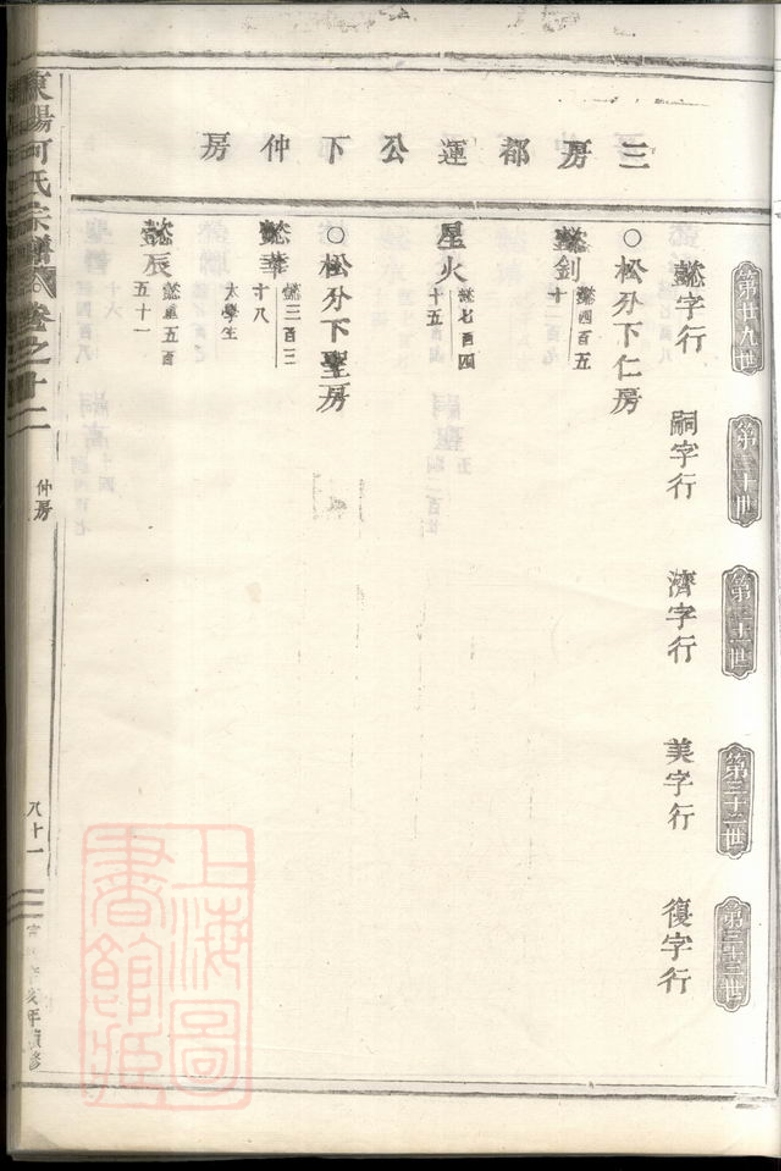 三房都運公下仲房
第廿九世
懿字行
第三十世
嗣字行
第三十一世
濟字行
第三十二世
美字行
第三十三世
復字行
○松分下仁房
懿釗
懿四百五
十
星火
懿七百四
十五
○松分下聖房
懿華
懿三百三
十八
太學生
懿辰
懿重五百
五十一
東陽何氏宗譜
卷之十二
仲房
八十一
亥年重修
上海圖書館藏